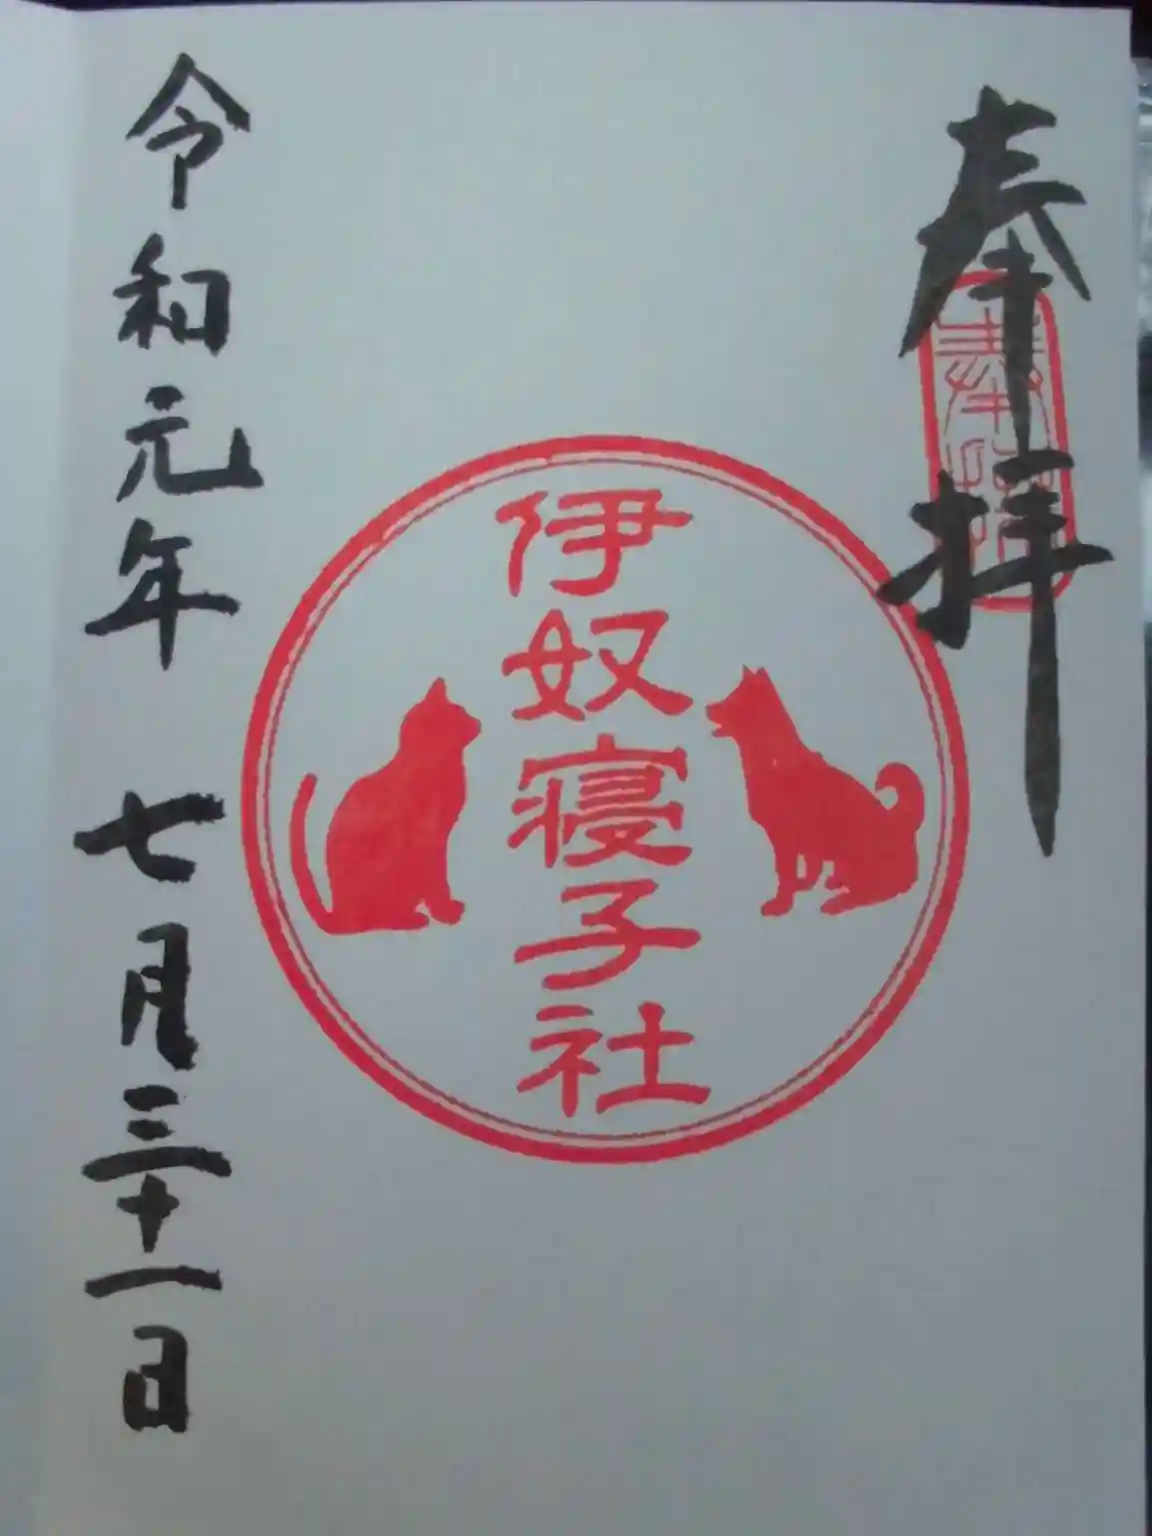 奉拝
伊奴寝子社
令和元年 七月三十一日